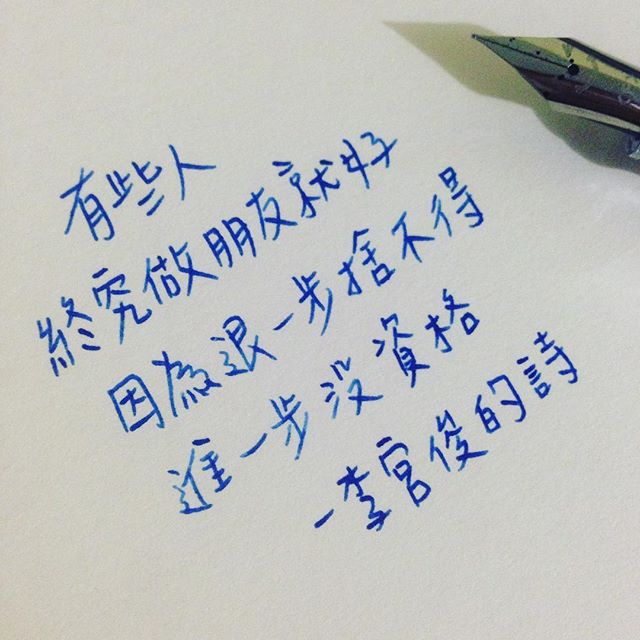 有些人
終究做朋友就好
因為退一步捨不得
進一步沒資格
-李宮俊的詩